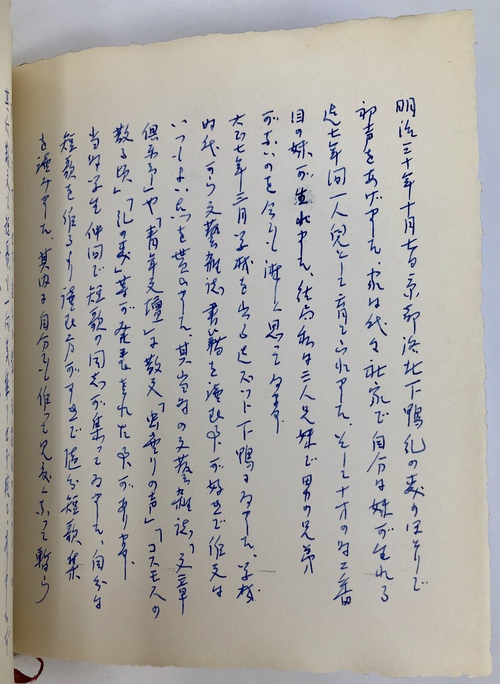 明治三十年十月七日京都洛北下鴨糺の森のほとりで
初声をあげました、家は代々社家で自分は妹が生れる
迄七年間一人児として育てられました、そして十才の時二番
目の妹が生れました、結局私は三人兄妹で男の兄弟
がないのを今でも淋しく思って居ます
大正七年三月学校を出る迄ズット下鴨に居ました、学校
時代から文藝雑誌、書籍を読む事が好きで作文は
いつもよい点を貰いました、其当時の文藝雑誌「文章
倶楽部」や「青年文壇」に散文「虫売りの声」「コスモスの
散る頃」「糺の森」等が発表された事があります、
当時学生仲間で短歌の同志が集って居ました、自分は
短歌を作るより読む方がすきで随分短歌集
を読みました、其内に自分でも作って見度くなって暫ら